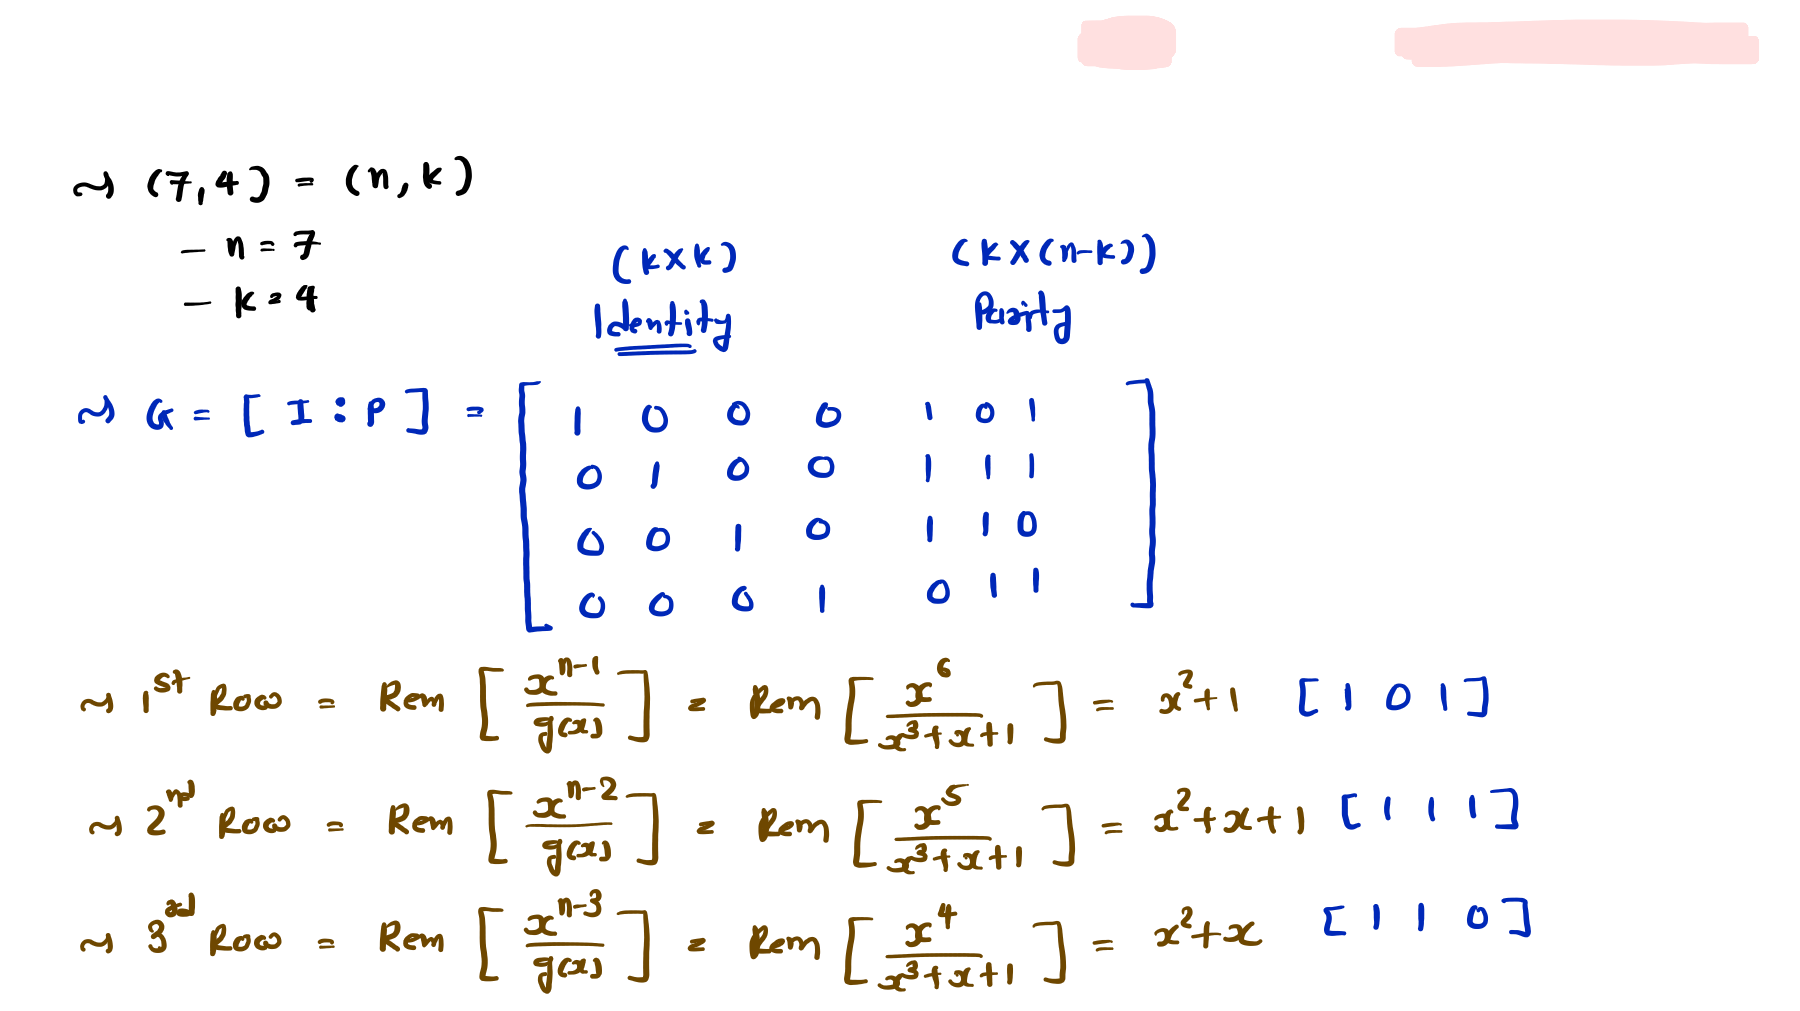 ~> (7,4) = (n,k)
- n = 7
- k = 4
(k×k) (k×(n-k))
Identity Parity
~> G = [ I : P ] = [ 1 0 0 0 1 0 1
0 1 0 0 1 1 1
0 0 1 0 1 1 0
0 0 0 1 0 1 1 ]
~> 1st Row = Rem [ x^{n-1} / g(x) ] = Rem [ x^6 / x^3+x+1 ] = x^2+1 [ 1 0 1 ]
~> 2nd Row = Rem [ x^{n-2} / g(x) ] = Rem [ x^5 / x^3+x+1 ] = x^2+x+1 [ 1 1 1 ]
~> 3rd Row = Rem [ x^{n-3} / g(x) ] = Rem [ x^4 / x^3+x+1 ] = x^2+x [ 1 1 0 ]